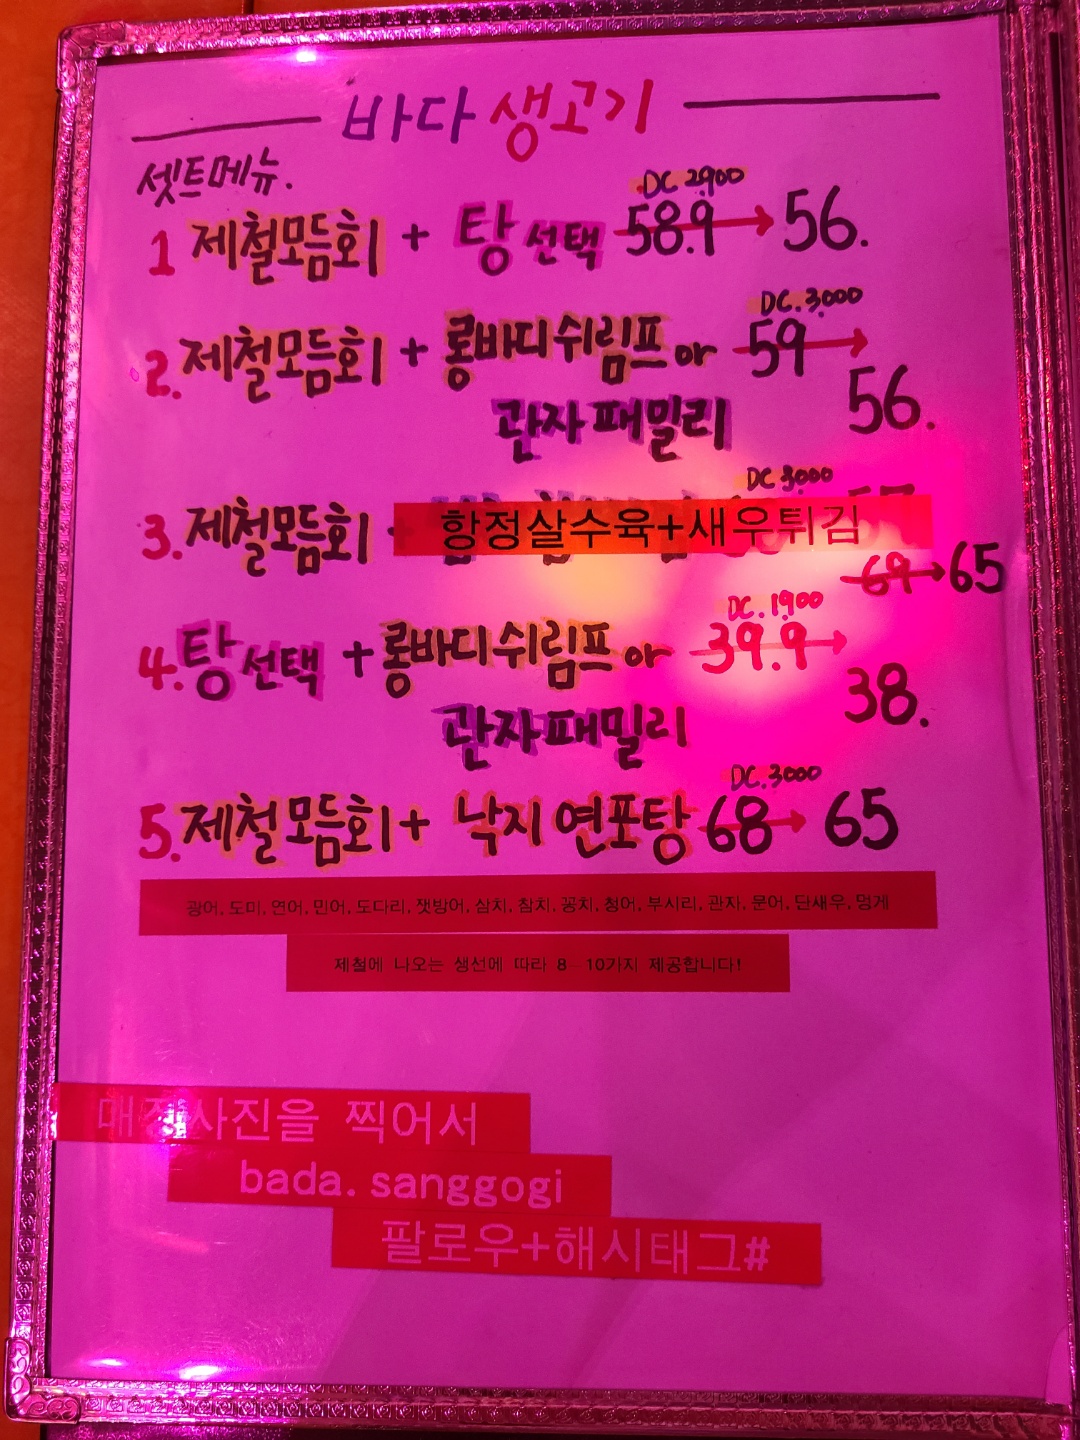 바다 생고기
셋트메뉴.
DC 2,900
1 제철모듬회 + 탕 선택 58.9 → 56.
DC. 3,000
2. 제철모듬회 + 롱바디 쉬림프 or 59 →
56.
관자 패밀리
DC 3000
3. 제철모듬회 + 항정살수육+새우튀김
69 → 65
DC. 1,900
4. 탕 선택 + 롱바디 쉬림프 or 39.9 →
38.
관자 패밀리
DC. 3000
5. 제철모듬회 + 낙지 연포탕 68 → 65
광어, 도미, 연어, 민어, 도다리, 잿방어, 삼치, 참치, 꽁치, 청어, 부시리, 관자, 문어, 단새우, 멍게
제철에 나오는 생선에 따라 8-10가지 제공합니다!
매장사진을 찍어서
bada. sanggogi
팔로우+해시태그#